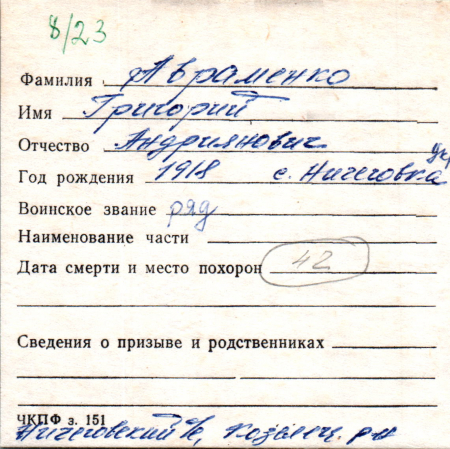 8/23
Фамилия Авраменко
Имя Григорий
Отчество Андриянович
Год рождения 1918 с. Ничеговка
Воинское звание ряд
Наименование части
Дата смерти и место похорон 42
Сведения о призыве и родственниках
ЧКПФ з. 151
Ничеговский с/с, Козелец. р-н